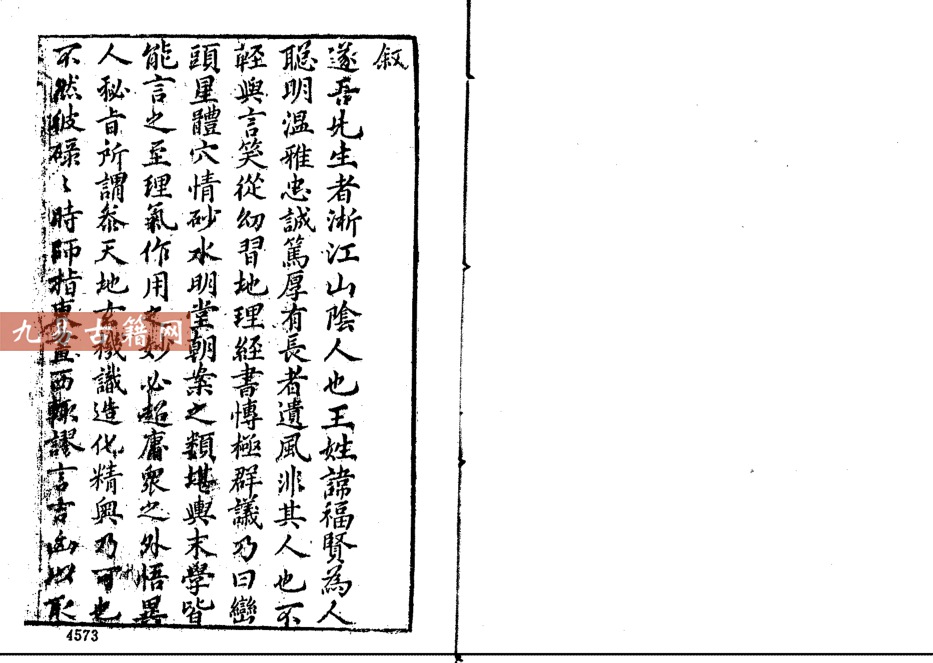 叙
遂吾先生者浙江山陰人也王姓諱福賢為人
聪明溫雅忠誠篤厚有長者遺風非其人也不
輕與言笑從幼習地理經書博極群議乃曰巒
頭星體穴情砂水明堂朝案之類堪輿末學皆
能言之至理氣作用之妙必超庸眾之外悟異
人秘旨所謂叅天地玄機識造化精奧乃可也
不然彼碌〻時師指東畫西輙謬言吉凶以取
九 古籍网
4573